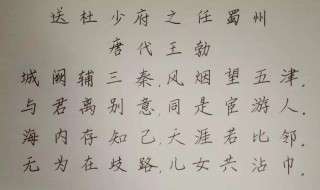 送杜少府之任蜀州
唐代王勃
城阙辅三秦,风烟望五津.
与君离别意,同是宦游人.
海内存知己,天涯若比邻.
无为在歧路,儿女共沾巾.